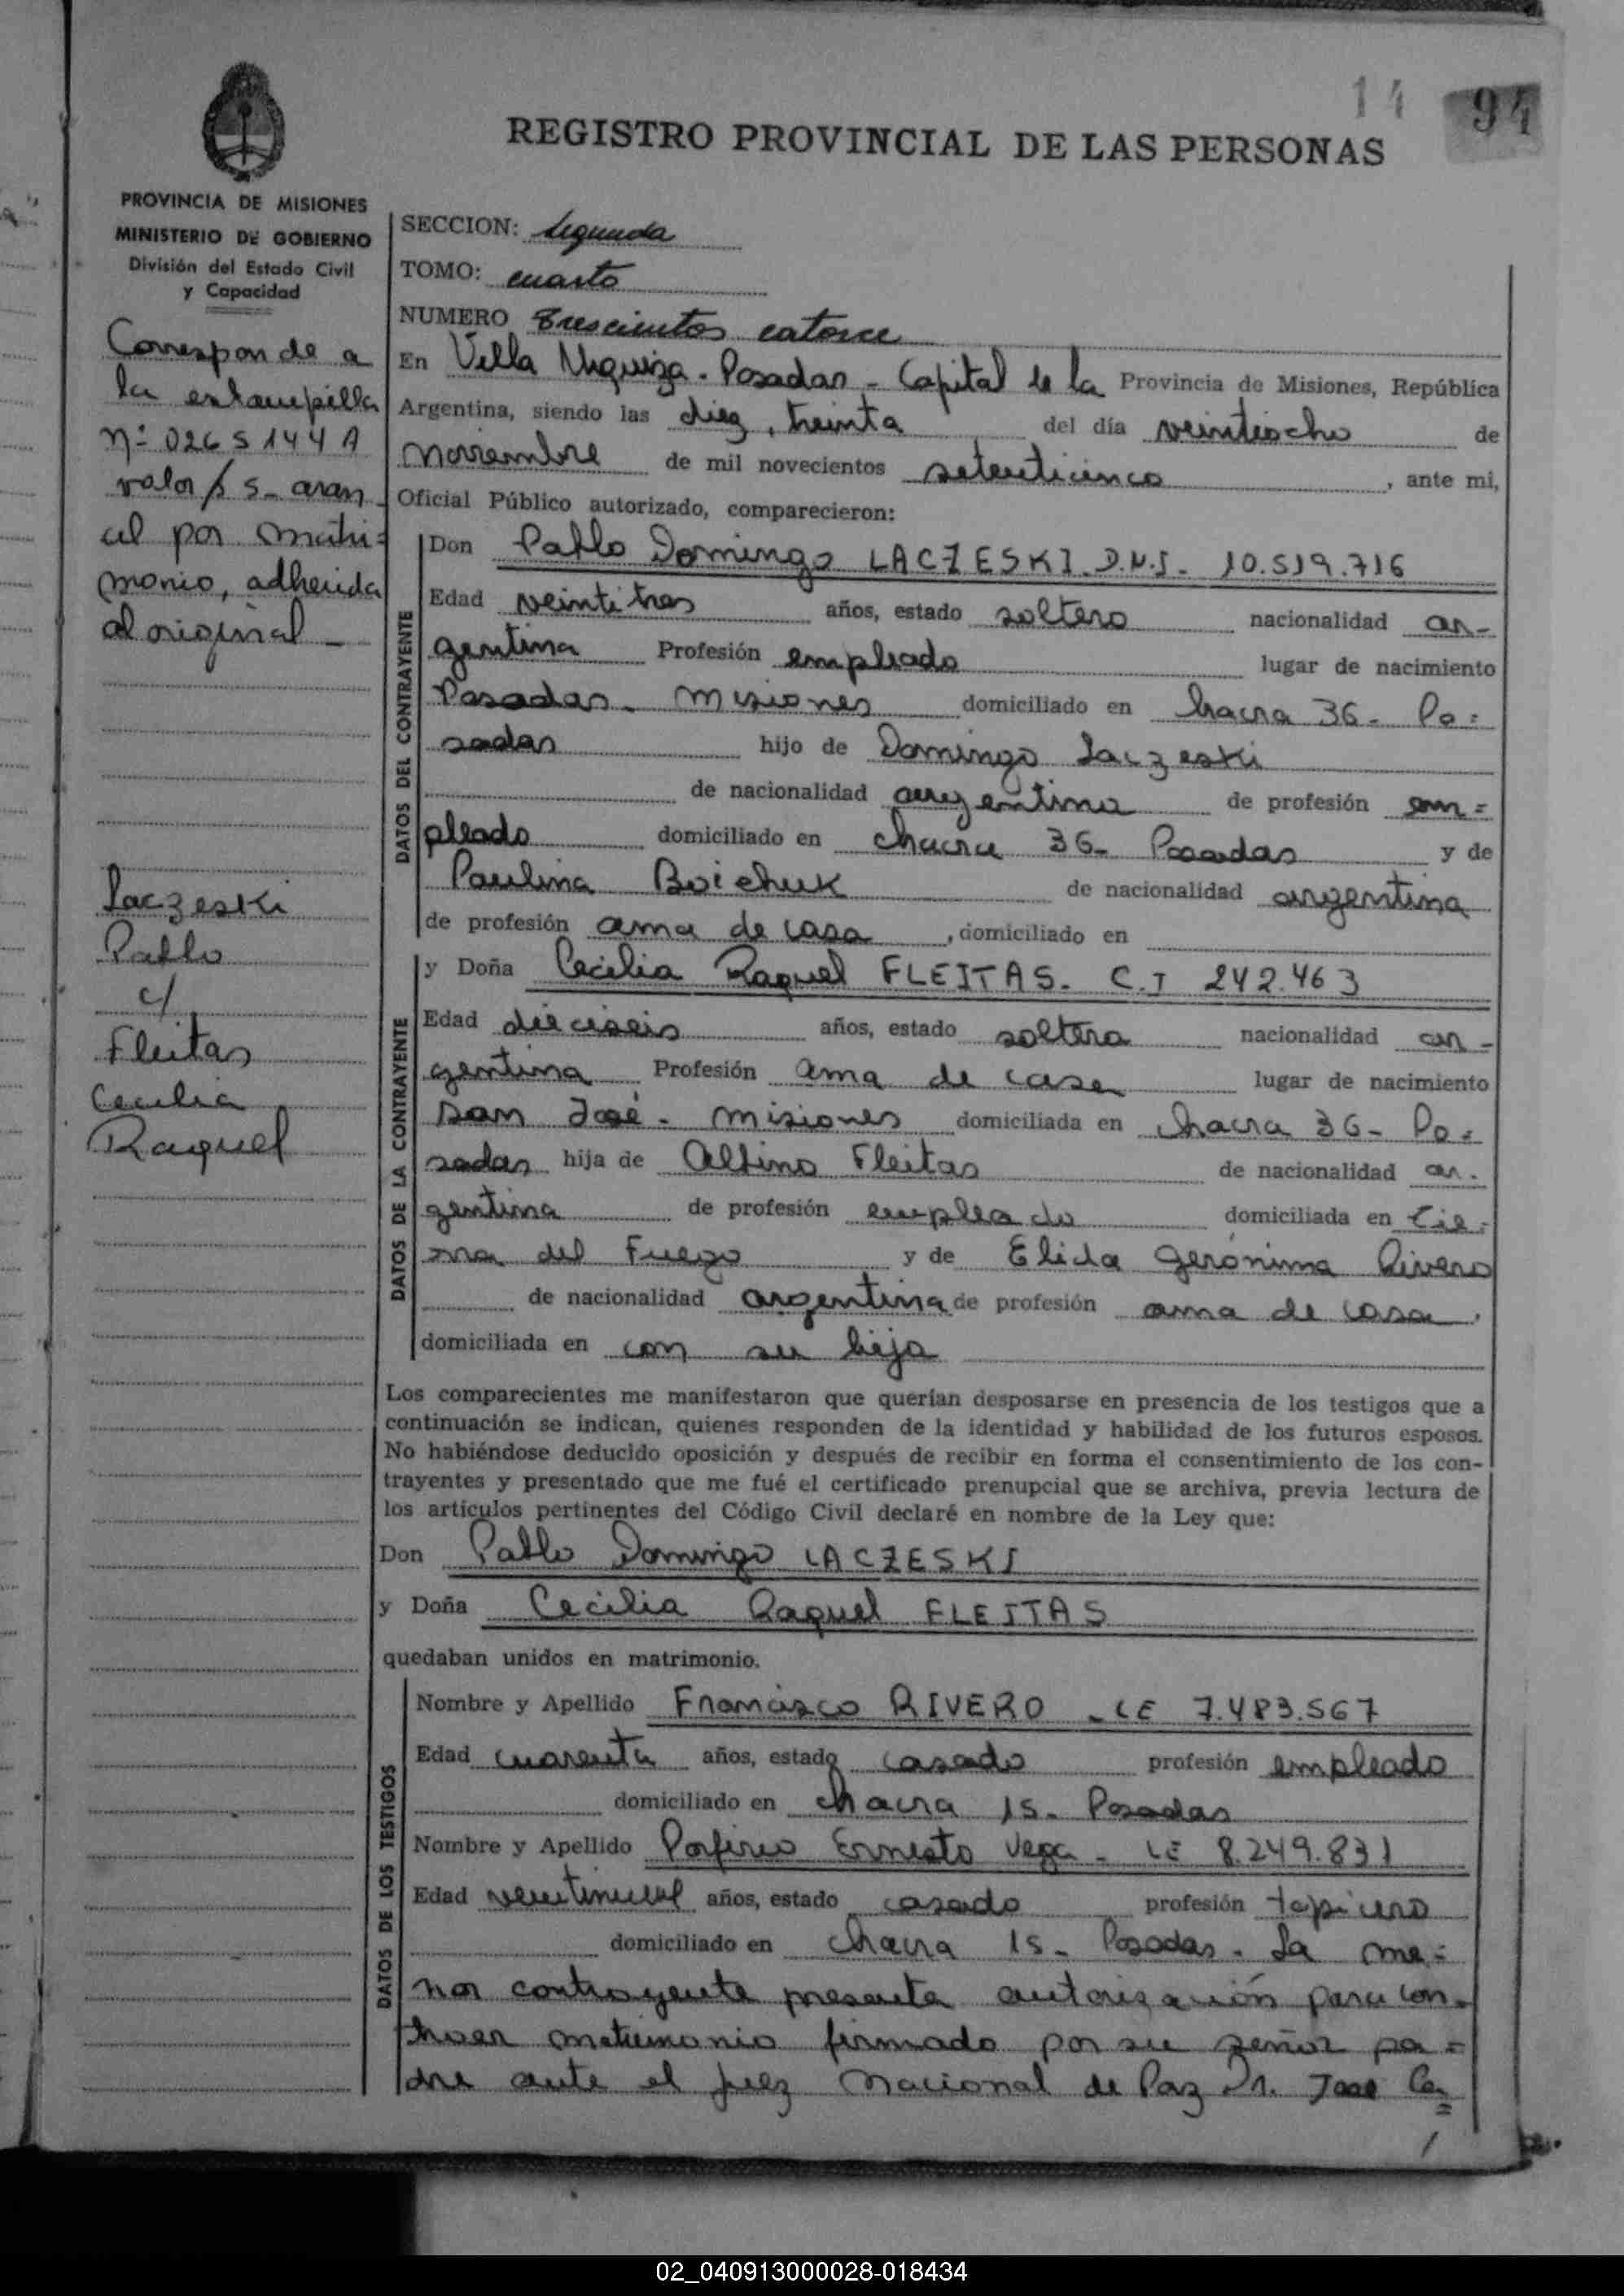 14 94
REGISTRO PROVINCIAL DE LAS PERSONAS
PROVINCIA DE MISIONES
MINISTERIO DE GOBIERNO
División del Estado Civil
y Capacidad
Corresponde a
la estampilla
Nº 0265144A
valor $ 5- aran
cel por matri=
monio, adherida
al original -
Laczeski
Pablo
c/
Fleitas
Cecilia
Raquel
SECCION: Segunda
TOMO: cuarto
NUMERO Trescientos catorce
En Villa Urquiza - Posadas - Capital de la Provincia de Misiones, República
Argentina, siendo las diez, treinta del día veintiocho de
noviembre de mil novecientos setenticinco, ante mi,
Oficial Público autorizado, comparecieron:
DATOS DEL CONTRAYENTE
Don Pablo Domingo LACZESKI. D.N.I. 10.519.716
Edad veintitres años, estado soltero nacionalidad ar-
gentina Profesión empleado lugar de nacimiento
Posadas. Misiones domiciliado en chacra 36 - Po=
sadas hijo de Domingo Laczeski
de nacionalidad argentina de profesión em=
pleado domiciliado en chacra 36- Posadas y de
Paulina Boichuk de nacionalidad argentina
de profesión ama de casa, domiciliado en
DATOS DE LA CONTRAYENTE
y Doña Cecilia Raquel FLEITAS. C.I 242.463
Edad dieciseis años, estado soltera nacionalidad ar-
gentina Profesión ama de casa lugar de nacimiento
San José - Misiones domiciliada en chacra 36- Po=
sadas hija de Albino Fleitas de nacionalidad ar-
gentina de profesión empleado domiciliada en Tie=
rra del Fuego y de Elida Gerónima Rivero
de nacionalidad argentina de profesión ama de casa,
domiciliada en con su hija
Los comparecientes me manifestaron que querían desposarse en presencia de los testigos que a
continuación se indican, quienes responden de la identidad y habilidad de los futuros esposos.
No habiéndose deducido oposición y después de recibir en forma el consentimiento de los con-
trayentes y presentado que me fué el certificado prenupcial que se archiva, previa lectura de
los artículos pertinentes del Código Civil declaré en nombre de la Ley que:
Don Pablo Domingo LACZESKI
y Doña Cecilia Raquel FLEITAS
quedaban unidos en matrimonio.
DATOS DE LOS TESTIGOS
Nombre y Apellido Francisco RIVERO - LE 7.483.567
Edad cuarenta años, estado casado profesión empleado
domiciliado en chacra 15- Posadas
Nombre y Apellido Porfirio Ernesto Vega - LE 8.249.831
Edad veintinueve años, estado casado profesión tapicero
domiciliado en chacra 15- Posadas. La me=
nor contrayente presenta autorización para con-
traer matrimonio firmado por su señor pa=
dre ante el Juez Nacional de Paz Dr. José Ca=
02_040913000028-018434